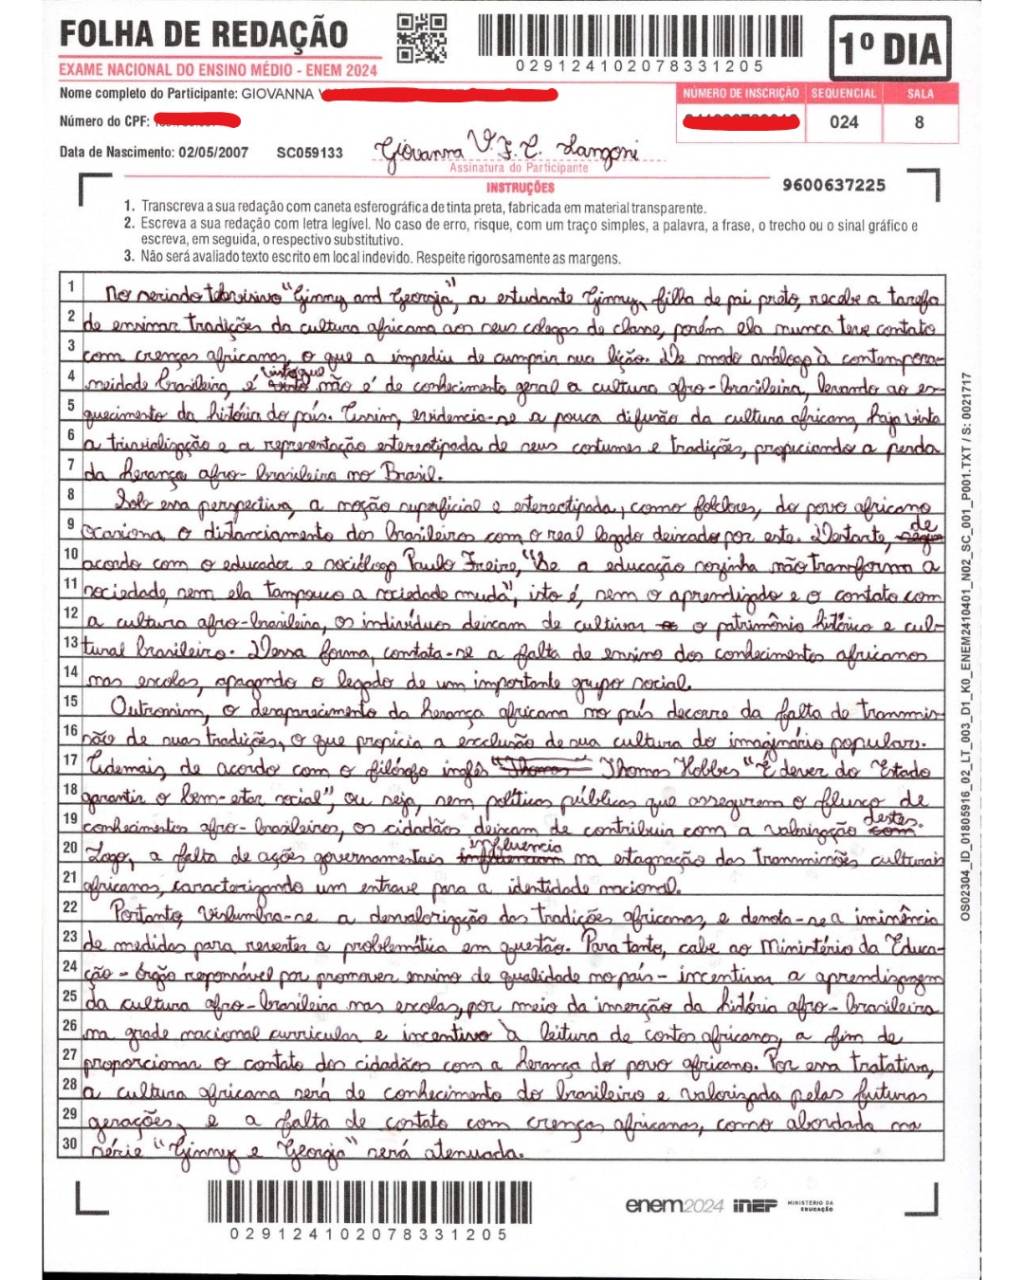 FOLHA DE REDAÇÃO
EXAME NACIONAL DO ENSINO MÉDIO - ENEM 2024
029124102078331205
1º DIA
Nome completo do Participante: GIOVANNA
NÚMERO DE INSCRIÇÃO SEQUENCIAL SALA
Número do CPF:
024 8
Data de Nascimento: 02/05/2007 SC059133 Giovanna V. F. C. Langoni
Assinatura do Participante
INSTRUÇÕES
9600637225
1. Transcreva a sua redação com caneta esferográfica de tinta preta, fabricada em material transparente.
2. Escreva a sua redação com letra legível. No caso de erro, risque, com um traço simples, a palavra, a frase, o trecho ou o sinal gráfico e
escreva, em seguida, o respectivo substitutivo.
3. Não será avaliado texto escrito em local indevido. Respeite rigorosamente as margens.
1 No seriado televisivo "Ginny and Georgia", a estudante Ginny, filha de pai preto, recebe a tarefa
2 de ensinar tradições da cultura africana aos seus colegas de classe, porém ela nunca teve contato
3 com crenças africanas, o que a impediu de cumprir sua lição. De modo análogo à contempora-
4 neidade brasileira, é visto que não é de conhecimento geral a cultura afro-brasileira, levando ao es-
5 quecimento da história do país. Assim, evidencia-se a pouca difusão da cultura africana, haja vista
6 a trivialização e a representação estereotipada de seus costumes e tradições, propiciando a perda
7 da herança afro-brasileira no Brasil.
8 Sob essa perspectiva, a noção superficial e estereotipada, como folclores, do povo africano
9 ocasiona o distanciamento dos brasileiros com o real legado deixado por este. Destarte, de
10 acordo com o educador e sociólogo Paulo Freire, "Se a educação sozinha não transforma a
11 sociedade, sem ela tampouco a sociedade muda", isto é, sem o aprendizado e o contato com
12 a cultura afro-brasileira, os indivíduos deixam de cultivar o patrimônio histórico e cul-
13 tural brasileiro. Dessa forma, constata-se a falta de ensino dos conhecimentos africanos
14 nas escolas, apagando o legado de um importante grupo social.
15 Outrossim, o desaparecimento da herança africana no país decorre da falta de transmis-
16 são de suas tradições, o que propicia a exclusão de sua cultura do imaginário popular.
17 Ademais, de acordo com o filósofo inglês Thomas Hobbes "É dever do Estado
18 garantir o bem-estar social", ou seja, sem políticas públicas que assegurem o fluxo de
19 conhecimentos afro-brasileiros, os cidadãos deixam de contribuir com a valorização destes.
20 Logo, a falta de ações governamentais influencia na estagnação das transmissões culturais
21 africanas, caracterizando um entrave para a identidade nacional.
22 Portanto, vislumbra-se a desvalorização das tradições africanas, e denota-se a iminência
23 de medidas para reverter a problemática em questão. Para tanto, cabe ao Ministério da Educa-
24 ção - órgão responsável por promover ensino de qualidade no país - incentivar a aprendizagem
25 da cultura afro-brasileira nas escolas, por meio da inserção da história afro-brasileira
26 na grade nacional curricular e incentivo à leitura de contos africanos, a fim de
27 proporcionar o contato dos cidadãos com a herança do povo africano. Por essa tratativa,
28 a cultura africana será de conhecimento do brasileiro e valorizada pelas futuras
29 gerações, e a falta de contato com crenças africanas, como abordada na
30 série "Ginny e Georgia" será atenuada.
OS02304_ID_01805916_02_LT_003_D1_K0_ENEM2410401_N02_SC_001_P001.TXT / S: 0021717
029124102078331205
enem2024 inep MINISTÉRIO DA
EDUCAÇÃO